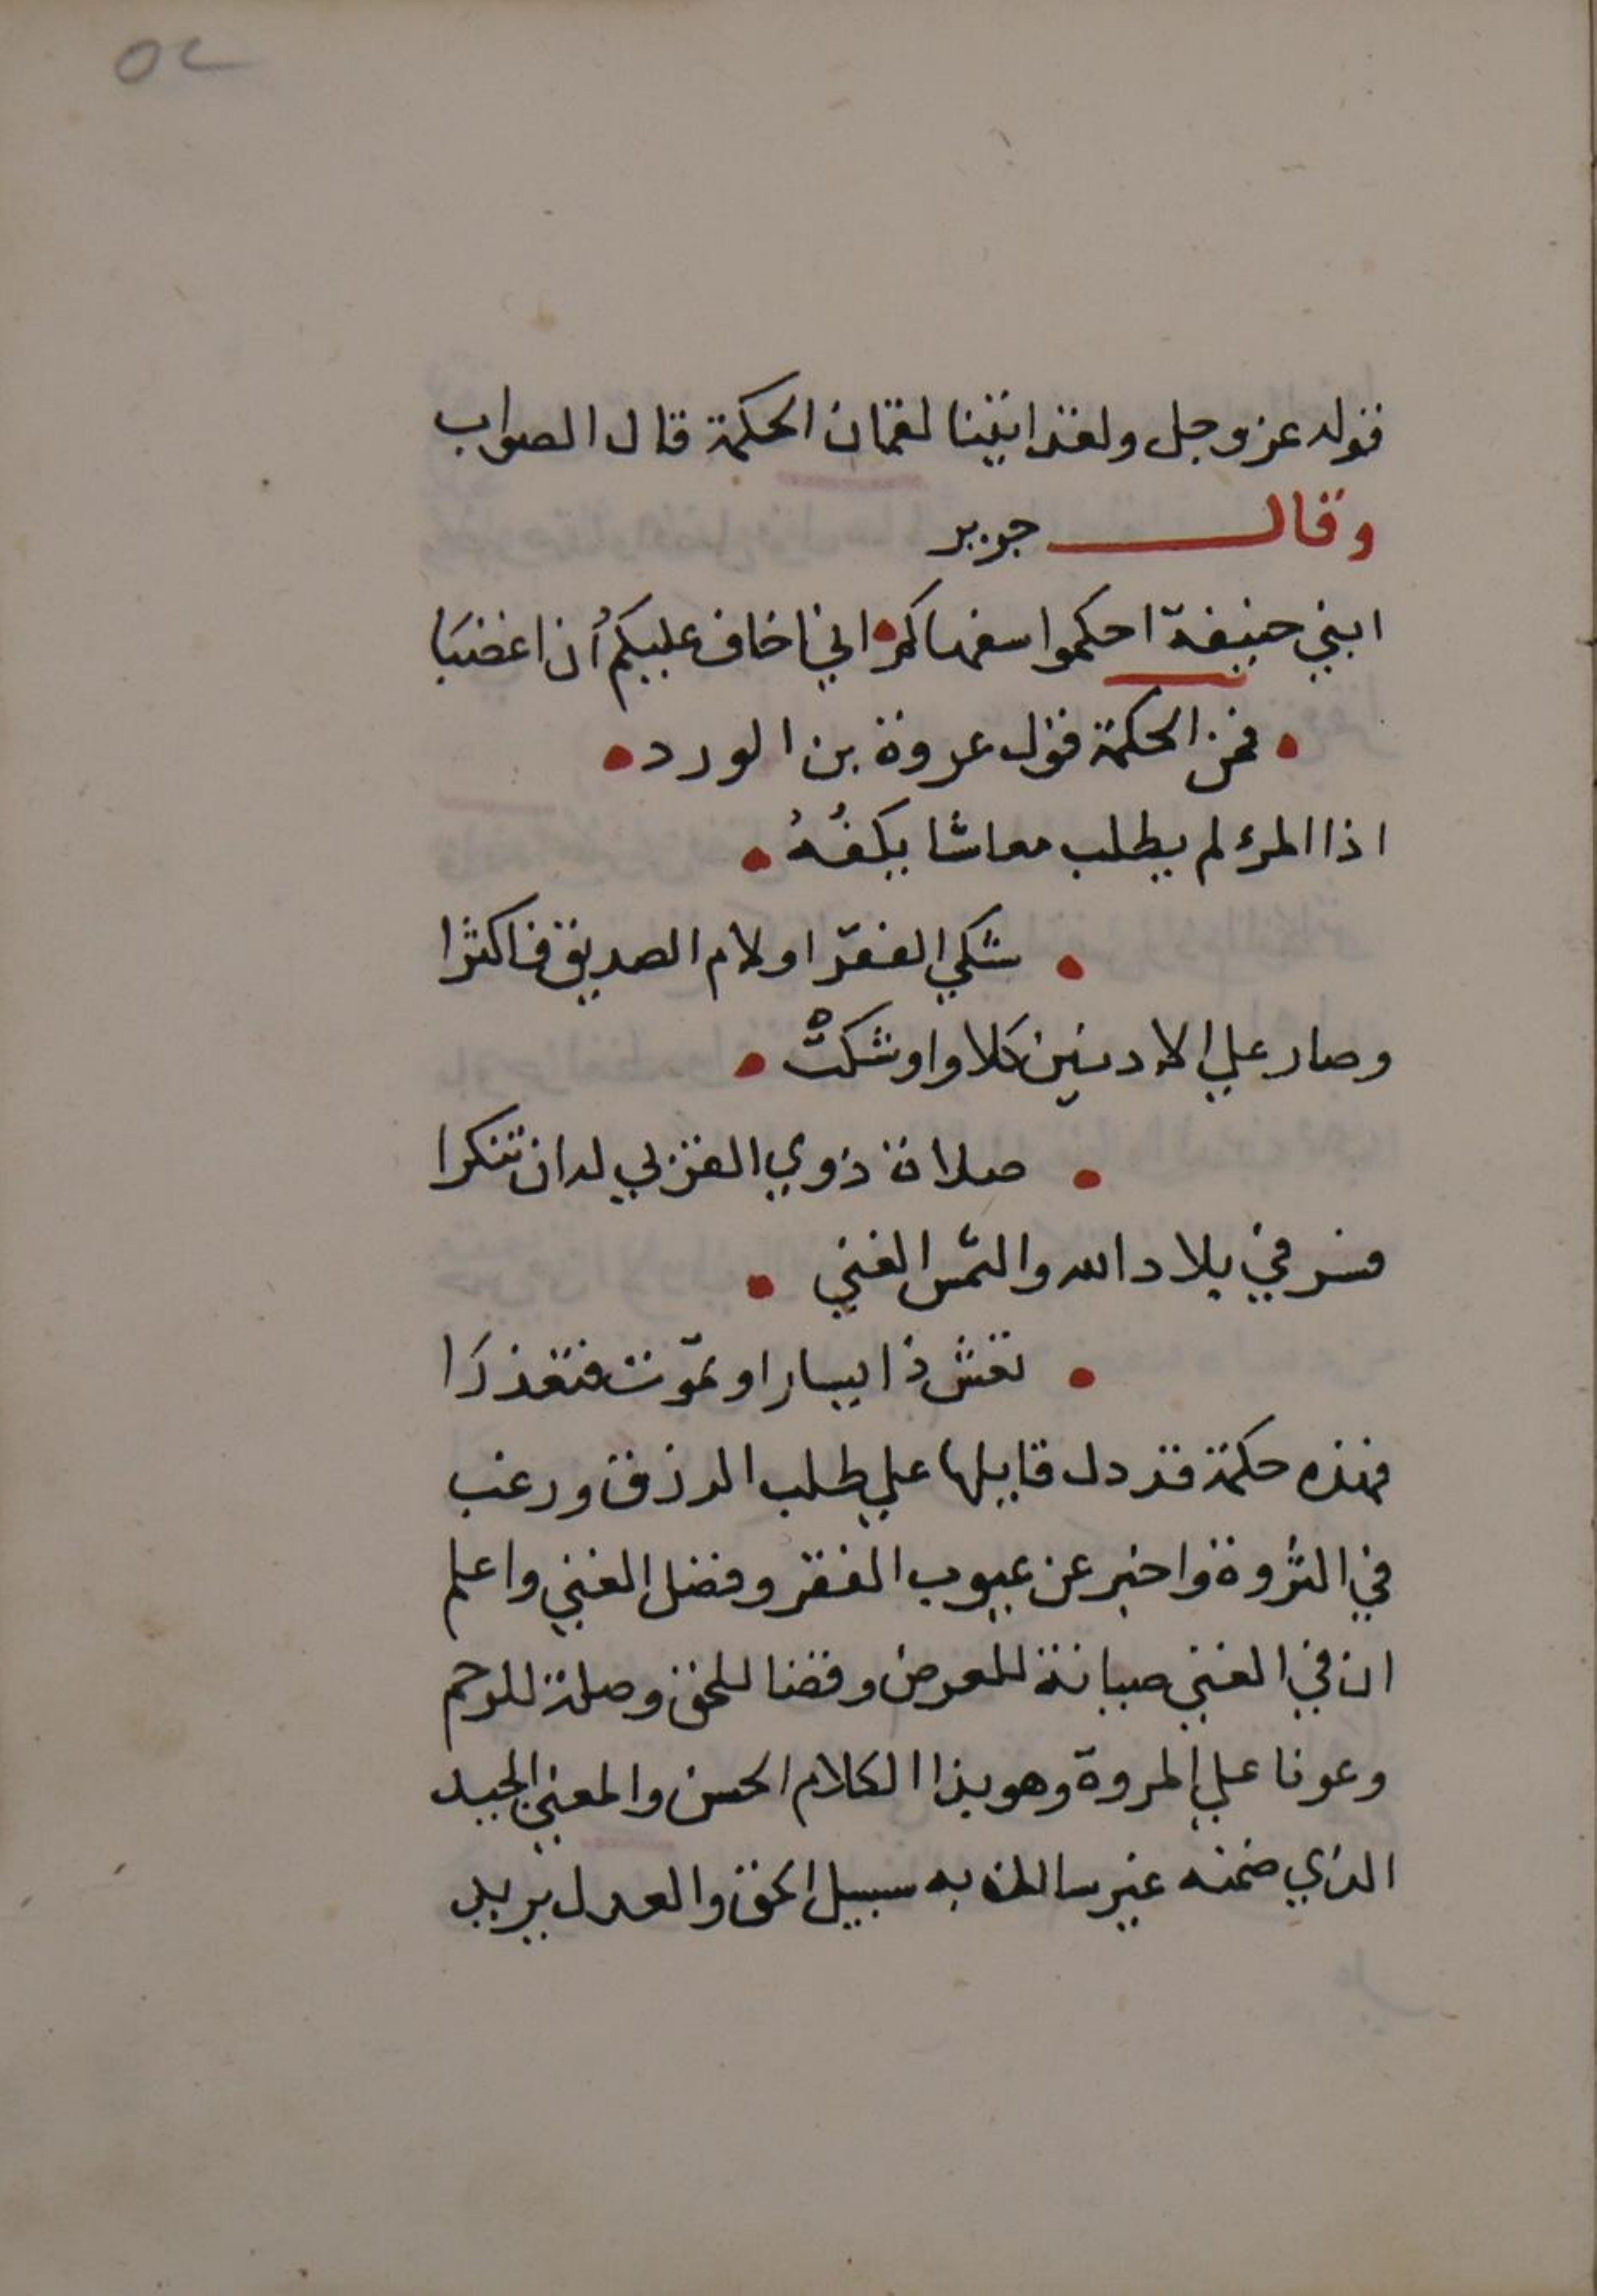 ٥٢
قوله عز وجل ولقد اتينا لقمان الحكمة قال الصواب
وقال جرير
ابني حنيفة احكموا سفهاكم • اني اخاف عليكم أن اغضبَا
• فمن الحكمة قول عروة بن الورد •
اذا المرء لم يطلب معاشا يكفُهُ •
• شكي الفقر او لام الصديق فاكثرا
وصار علي الادنين كلا واوشكتْ •
• صلاة ذوي القربي له ان تنكرا
فسر في بلاد الله والتمس الغني •
• تعش ذا يسار او تموت فتعذرَا
فهذه حكمة قد دل قايلها علي طلب الرزق ورغب
في الثروة واخبر عن عيوب الفقر وفضل الغني واعلم
ان في الغني صيانة للعرض وقضا للحق وصلة للرحم
وعونا علي المروة وهو بهذا الكلام الحسن والمعني الجيد
الذي ضمنه غير سالك به سبيل الحق والعدل يريد